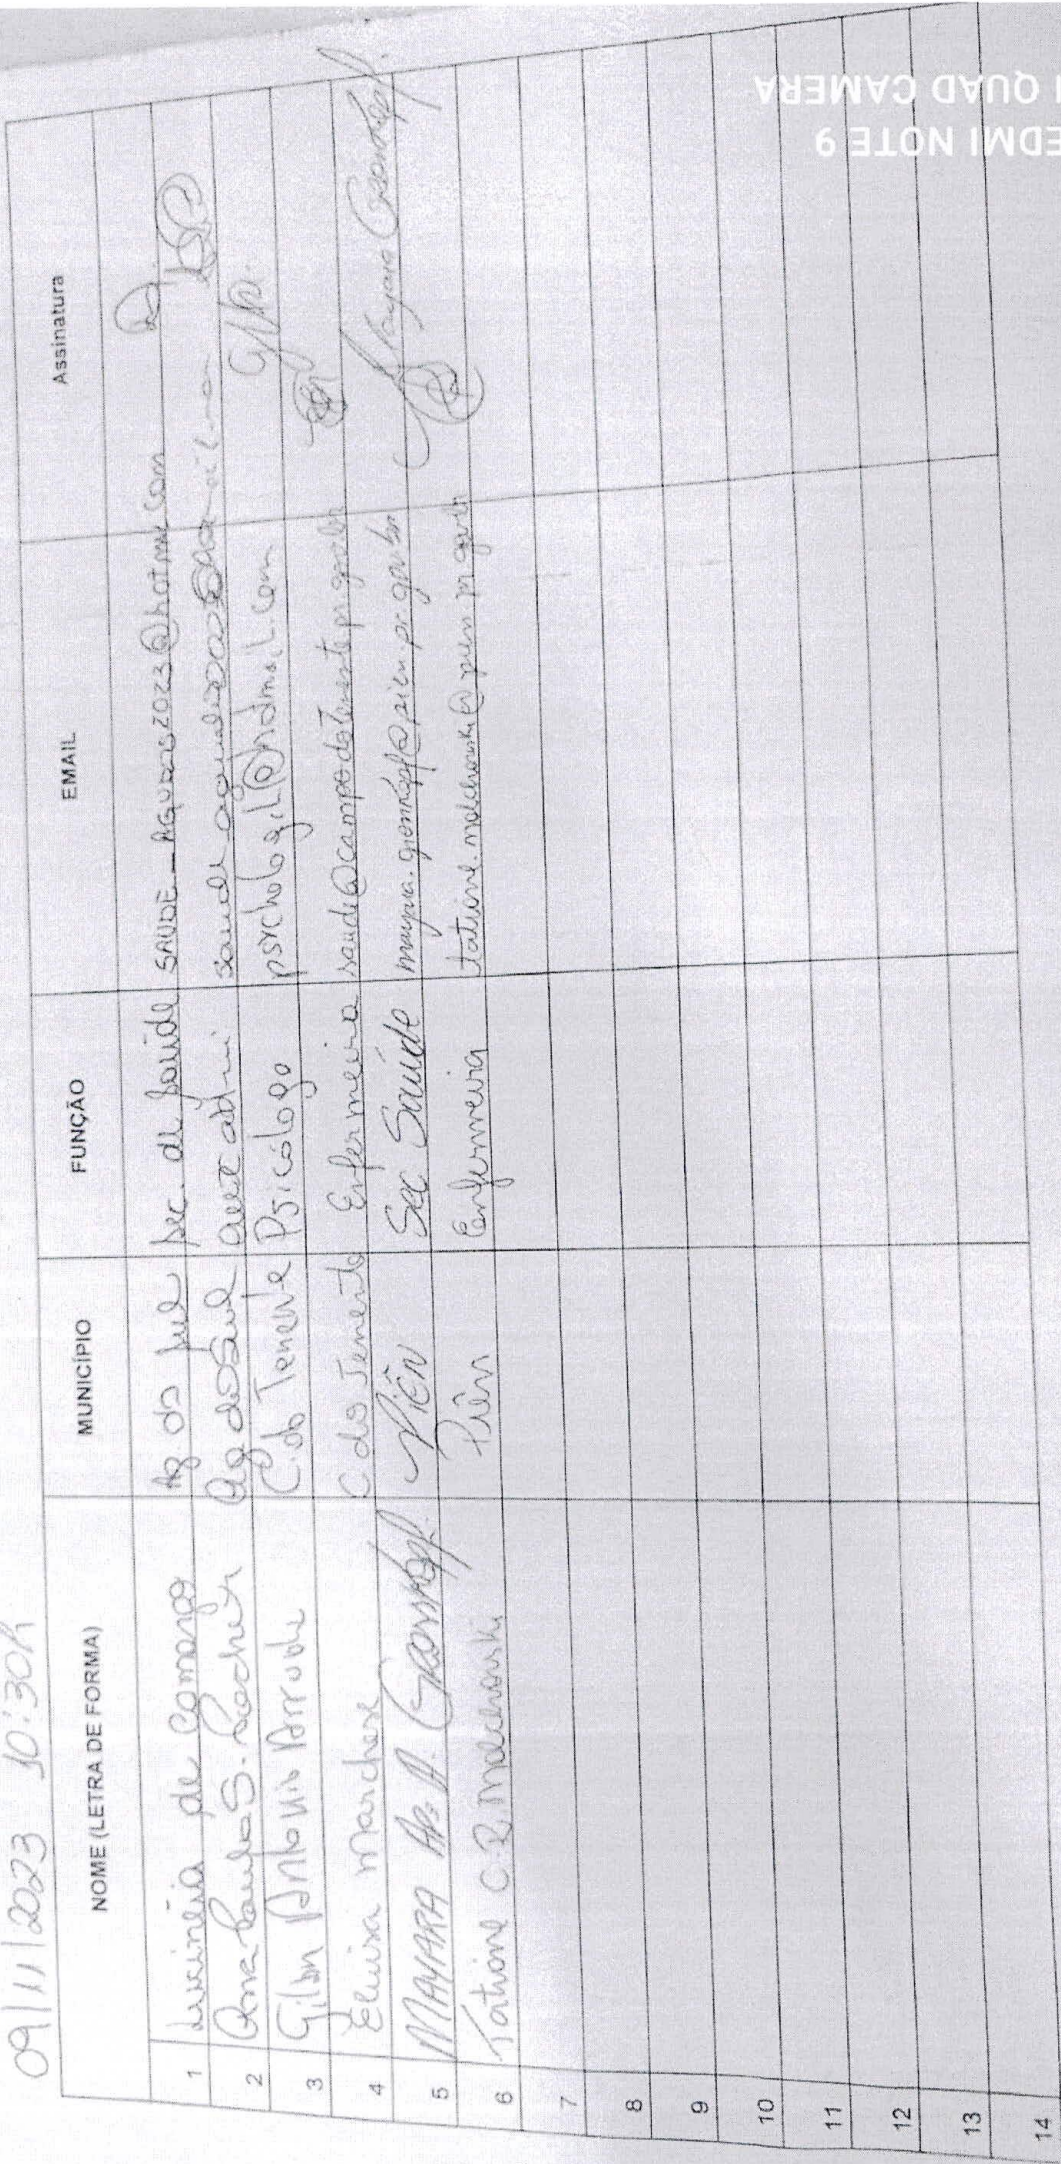 09/11/2023 10:30h
NOME (LETRA DE FORMA) MUNICÍPIO FUNÇÃO EMAIL Assinatura
1 Lucinéia de Camargo Ag do Sul Sec. de Saúde SAUDE_AGUDOS2023@hotmail.com
2 Ana Paula S. Ag do Sul admi
3 Gilson Antonio Arruda C. do Tenente Psicólogo psychologil@hotmail.com
4 Elvira Marchese C do Tenente Enfermeira saude@campodotenente.pr.gov.br
5 MAYARA Ap. A. Grosskopf Piên Sec Saúde mayara.grosskopf@pien.pr.gov.br
6 Tatiane C. R. Melchorski Piên Enfermeira
7
8
9
10
11
12
13
14
REDMI NOTE 9
QUAD CAMERA